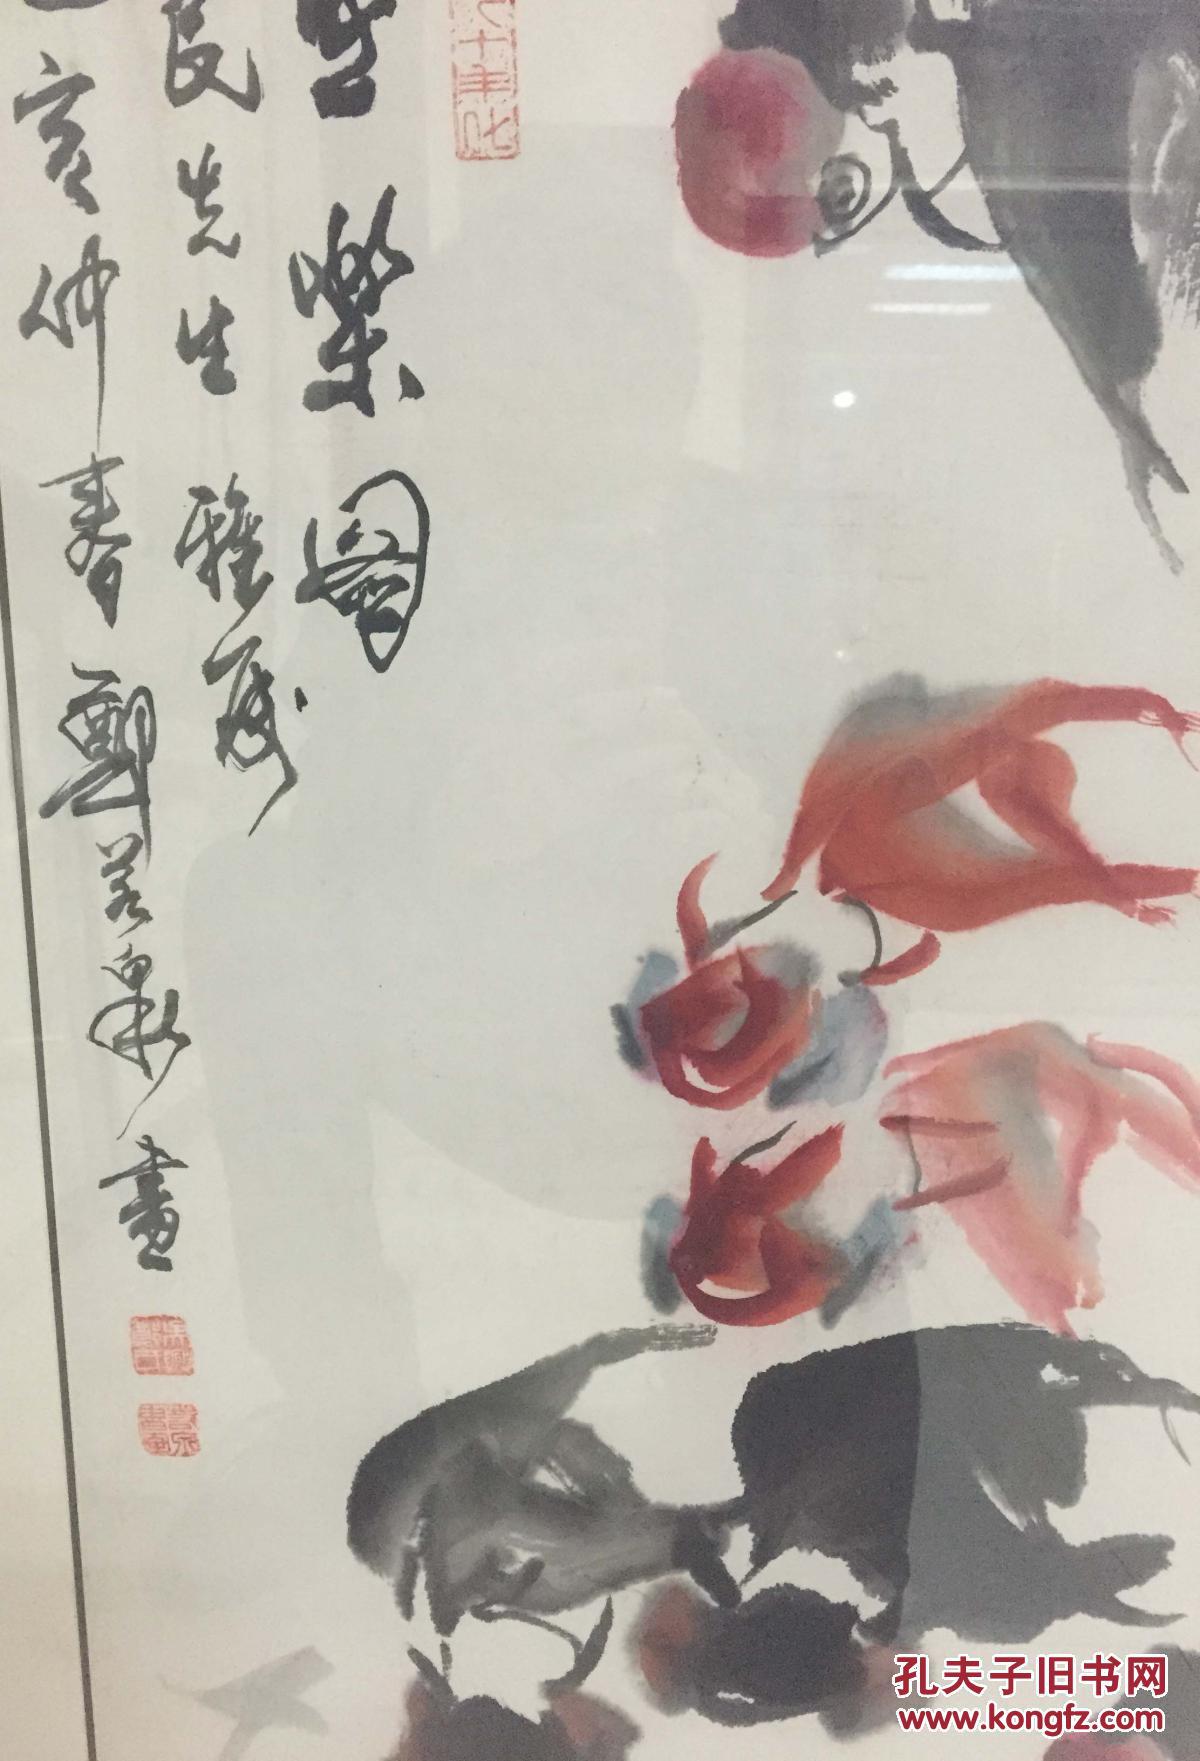 樂圖
民先生雅屬
亥仲春鄭若泉畫
七十年代
孔夫子旧书网
www.kongfz.com